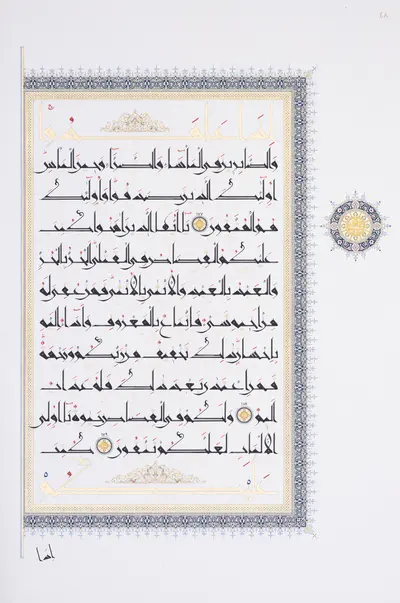 ٤٨
إذا عاهدوا
والصابرين في البأساء والضراء وحين البأس
أولئك الذين صدقوا وأولئك
هم المتقون ١٧٧ يا أيها الذين آمنوا كتب
عليكم القصاص في القتلى الحر بالحر
والعبد بالعبد والأنثى بالأنثى فمن عفي له
من أخيه شيء فاتباع بالمعروف وأداء إليه
بإحسان ذلك تخفيف من ربكم ورحمة
فمن اعتدى بعد ذلك فله عذاب
أليم ١٧٨ ولكم في القصاص حياة يا أولي
الألباب لعلكم تتقون ١٧٩ كتب
عليكم
إذا